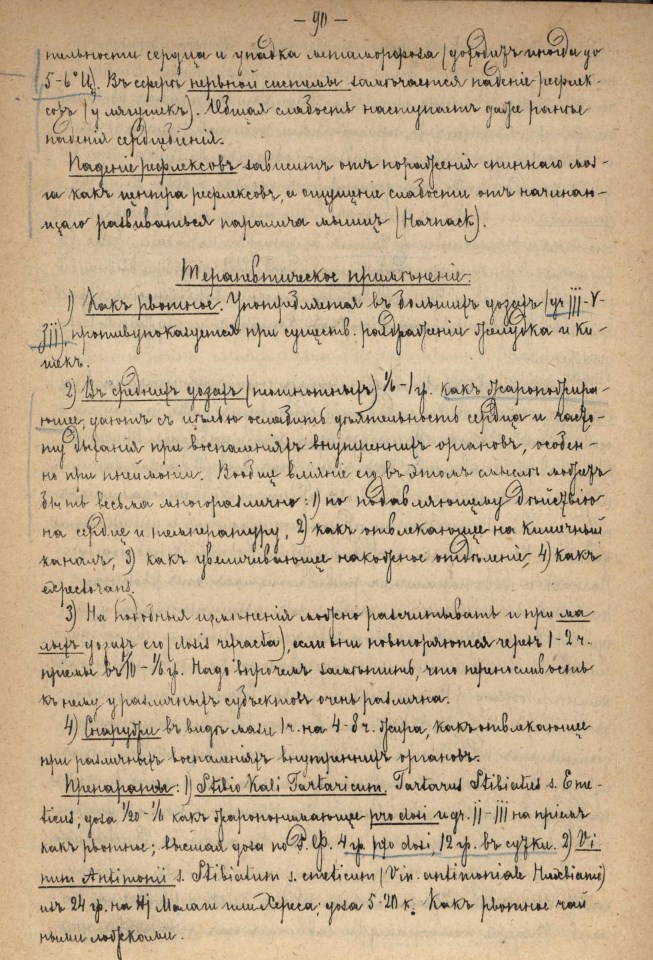 — 90 —
тельности сердца и упадка метаморфоза (доходитъ иногда до
5-6° Ц). Въ сферѣ нервной системы замѣчается паденіе рефлек-
совъ (у лягушекъ). Общая слабость наступаетъ даже раньше
паденія сердцебіенія.
Паденіе рефлексовъ зависитъ отъ пораженія спиннаго моз-
га какъ центра рефлексовъ, а ощущеніе слабости отъ начинаю-
щаго развиваться паралича мышцъ (Harnack).
Терапевтическое примѣненіе.
1) Какъ рвотное. Употребляется въ большихъ дозахъ (gr III-V-
), противупоказуется при существ. раздраженіи желудка и ки-
шекъ.
2) Въ среднихъ дозахъ (тошнотныхъ) ⅙-1 гр. какъ жаропонижаю-
щее, даютъ съ цѣлью ослабить дѣятельность сердца и часто-
ту дыханія при воспаленіяхъ внутреннихъ органовъ, особен-
но при пнеймоніи. Вообще вліяніе его въ этомъ смыслѣ можетъ
быть весьма многоразлично: 1) по подавляющему дѣйствію
на сердце и температуру, 2) какъ отвлекающее на кишечный
каналъ, 3) какъ увеличивающее накожное отдѣленіе, 4) какъ
expectorans.
3) На подобныя измѣненія можно разсчитывать и при ма-
лыхъ дозахъ его (dosis refracta), если они повторяются черезъ 1-2 ч.
пріемы въ 1/10 - 1/6 гр. Надо впрочемъ замѣтить, что переносливость
къ нему у различныхъ субъектовъ очень различна.
4) Снаружи въ видѣ мази 1 ч. на 4-8 ч. жира, какъ отвлекающее
при различныхъ воспаленіяхъ внутреннихъ органовъ.
Препараты: 1) Stibio Kali Tartaricum. Tartarus Stibiatus s. Eme-
ticus; доза 1/20 - 1/6 какъ жаропонижающее pro dosi и gr. II-III на пріемъ
какъ рвотное; высшая доза по Р. Ф. 4 гр. pro dosi, 12 гр. въ сутки. 2) Vi-
num Antimonii s. Stibiatum s. emeticum (Vin. antimoniale Huxhami)
изъ 24 гр. на Малаги или Хереса; доза 5-20 к. Какъ рвотное чай-
ными ложками.